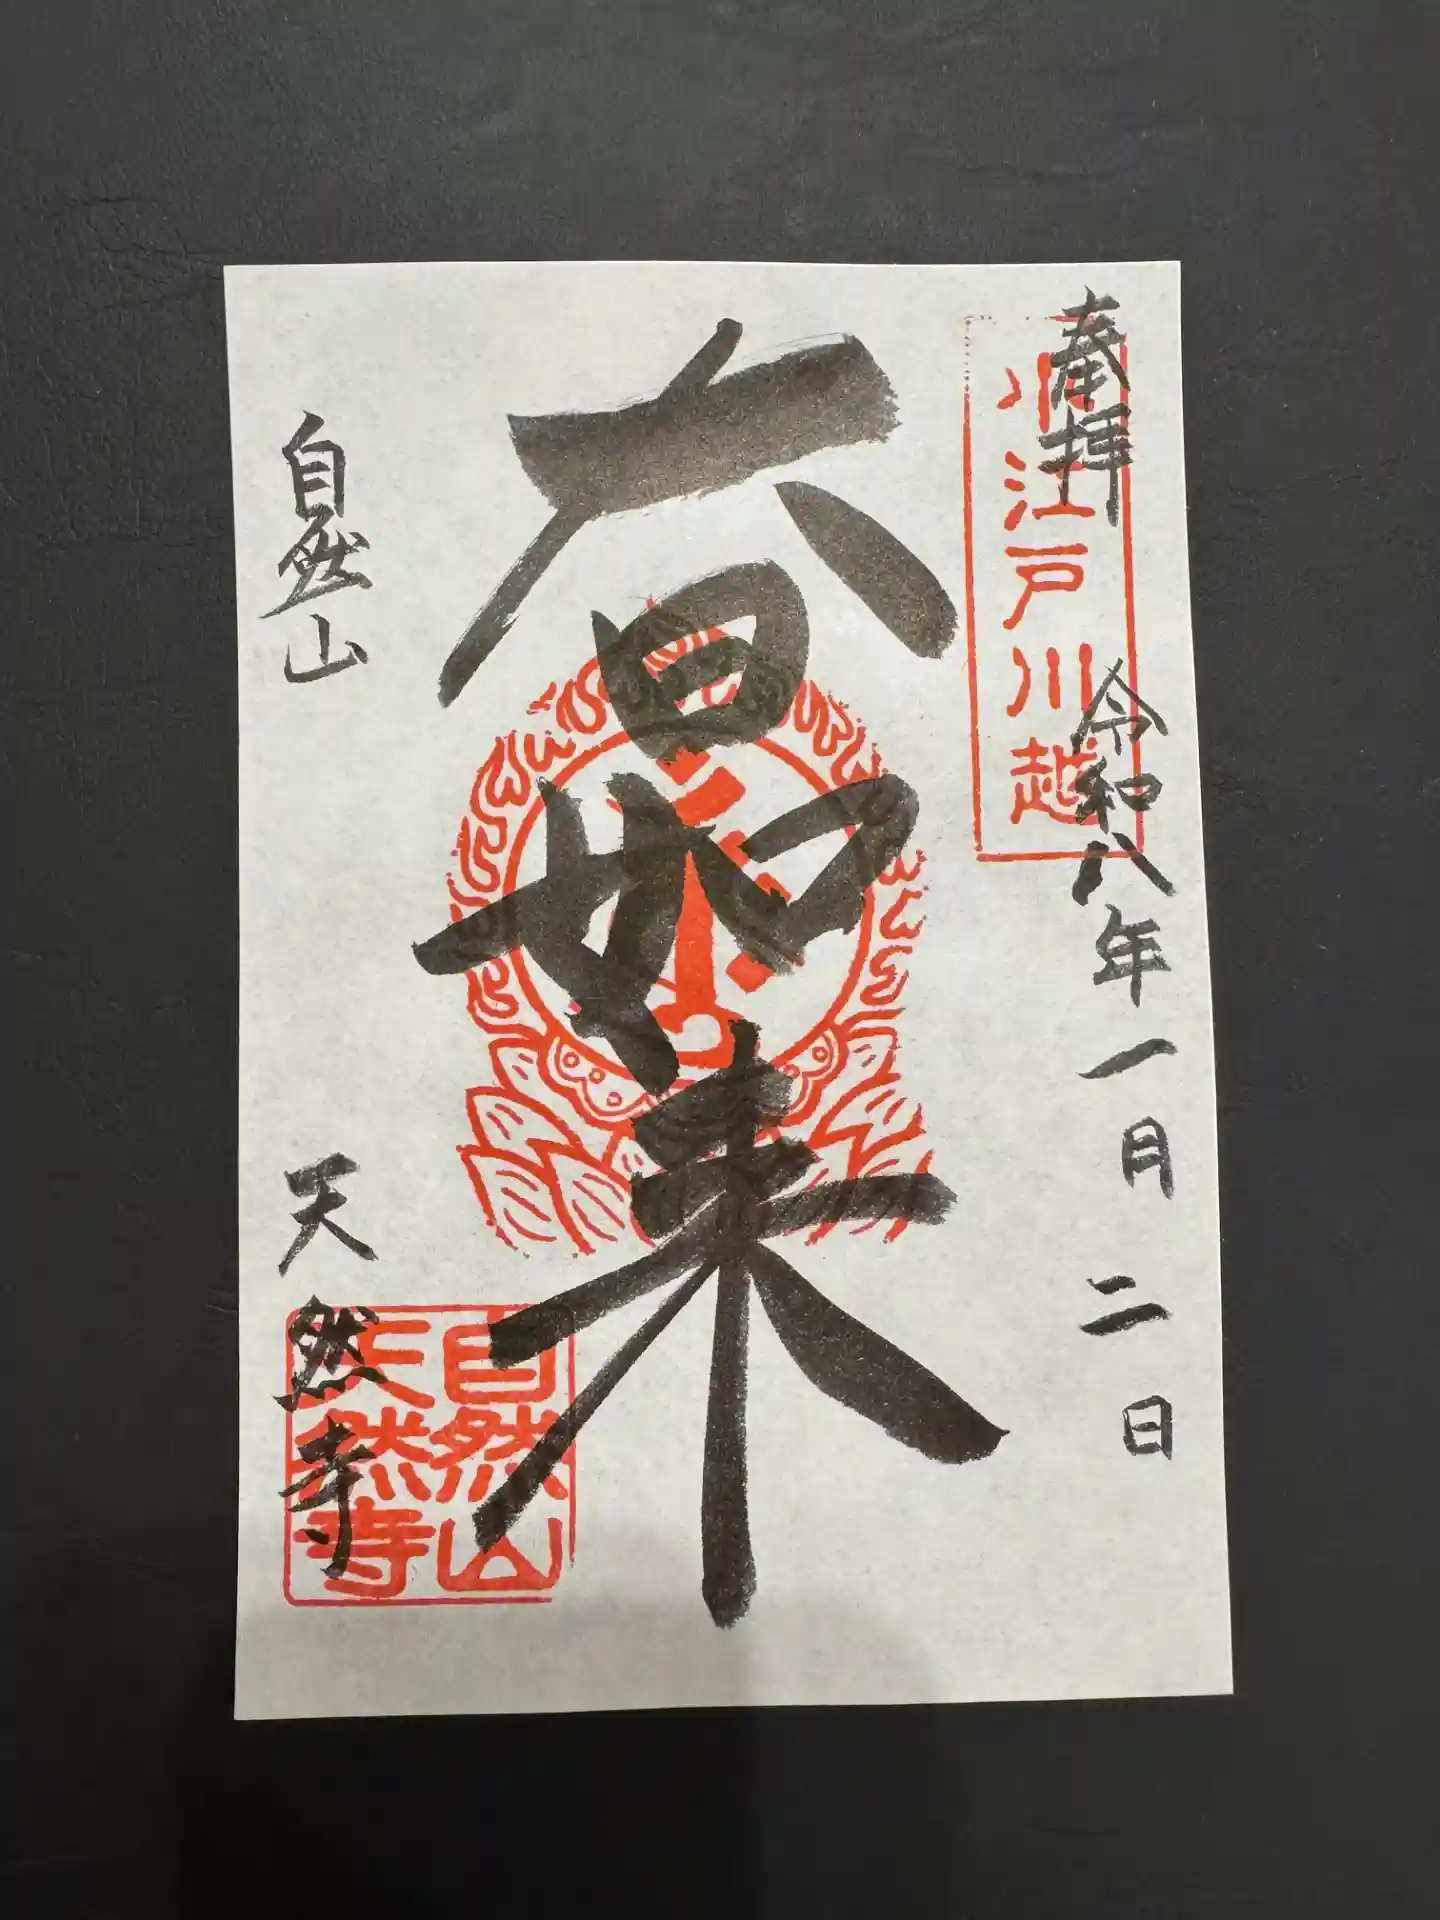 奉拝 令和八年一月二日
小江戸川越
大日如来
自然山 天然寺
自然山
天然寺